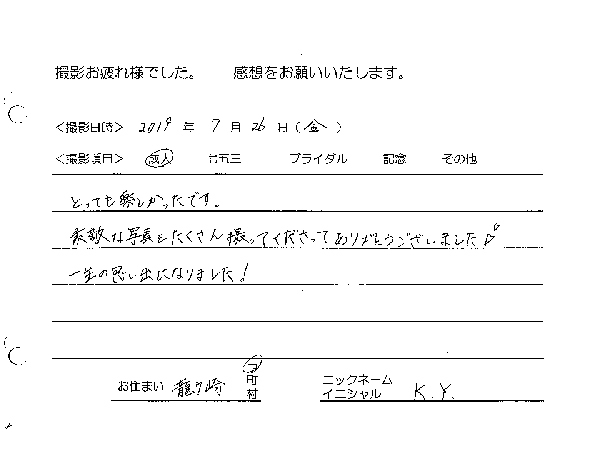 撮影お疲れ様でした。 感想をお願いいたします。
<撮影日時> 2019 年 7 月 26 日(金)
<撮影項目> 成人 七五三 ブライダル 記念 その他
とっても楽しかったです。
素敵な写真をたくさん撮ってくださってありがとうございました♪
一生の思い出になりました!
お住まい 龍ケ崎 市町村 ニックネーム イニシャル K.Y.